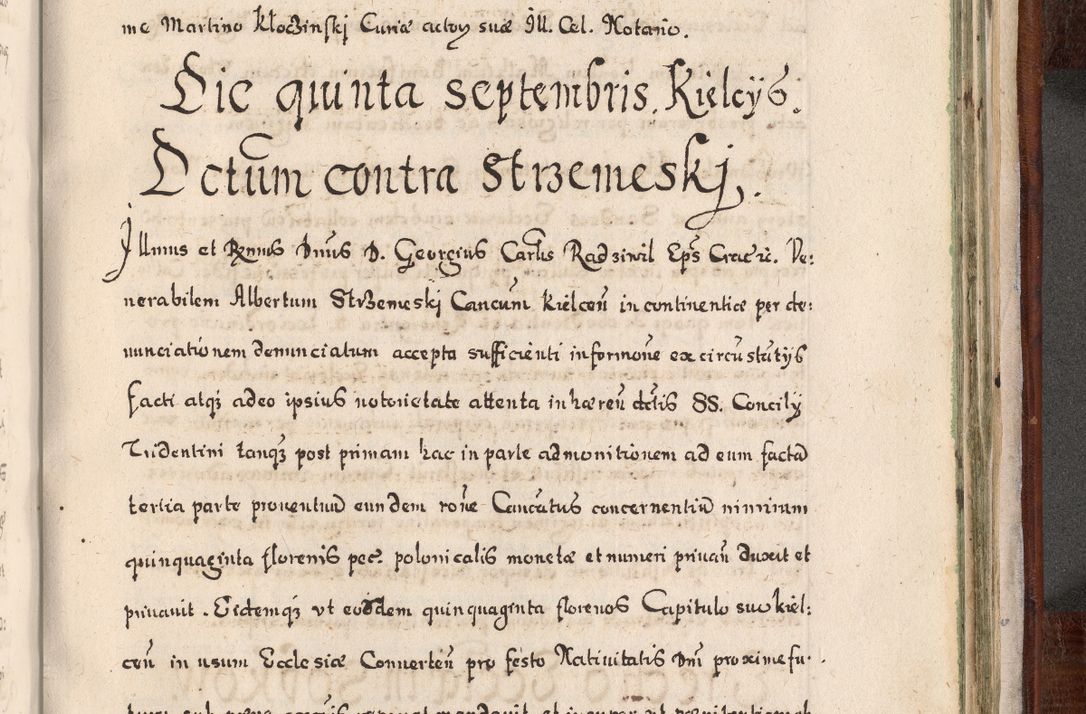 me Martino Kłoczinskj Curiæ actor suæ Ill. Cel. Notario.
Die quinta septembris. Kielcys.
Dctum contra Strzemeskj.
Illmus et Rmus Dnus D. Georgius Carlis Radziwil Eps Crac. Ve:
nerabilem Albertum Strzemeskj Cancum Kielcen in continentiæ per de:
nunciationem denunciatum accepta sufficienti informone ex circu statijs
facti atqz adeo ipsius notorietate attenta in hæren dctis SS. Concily
Tridentini tanqz post primam hac in parte admonitionem ad eum facta
tertia parte prouentiu eundem rone Cancatus concernentiu nimirum
quinquaginta florenis pec. polonicalis monetæ et numeri priuan duxit et
priuauit. Eidemqz vt eosdem quinquaginta florenos Capitulo suo kiel:
cen in usum Ecclesiæ Conuerten pro festo Natiuitatis Dni proxime fu: